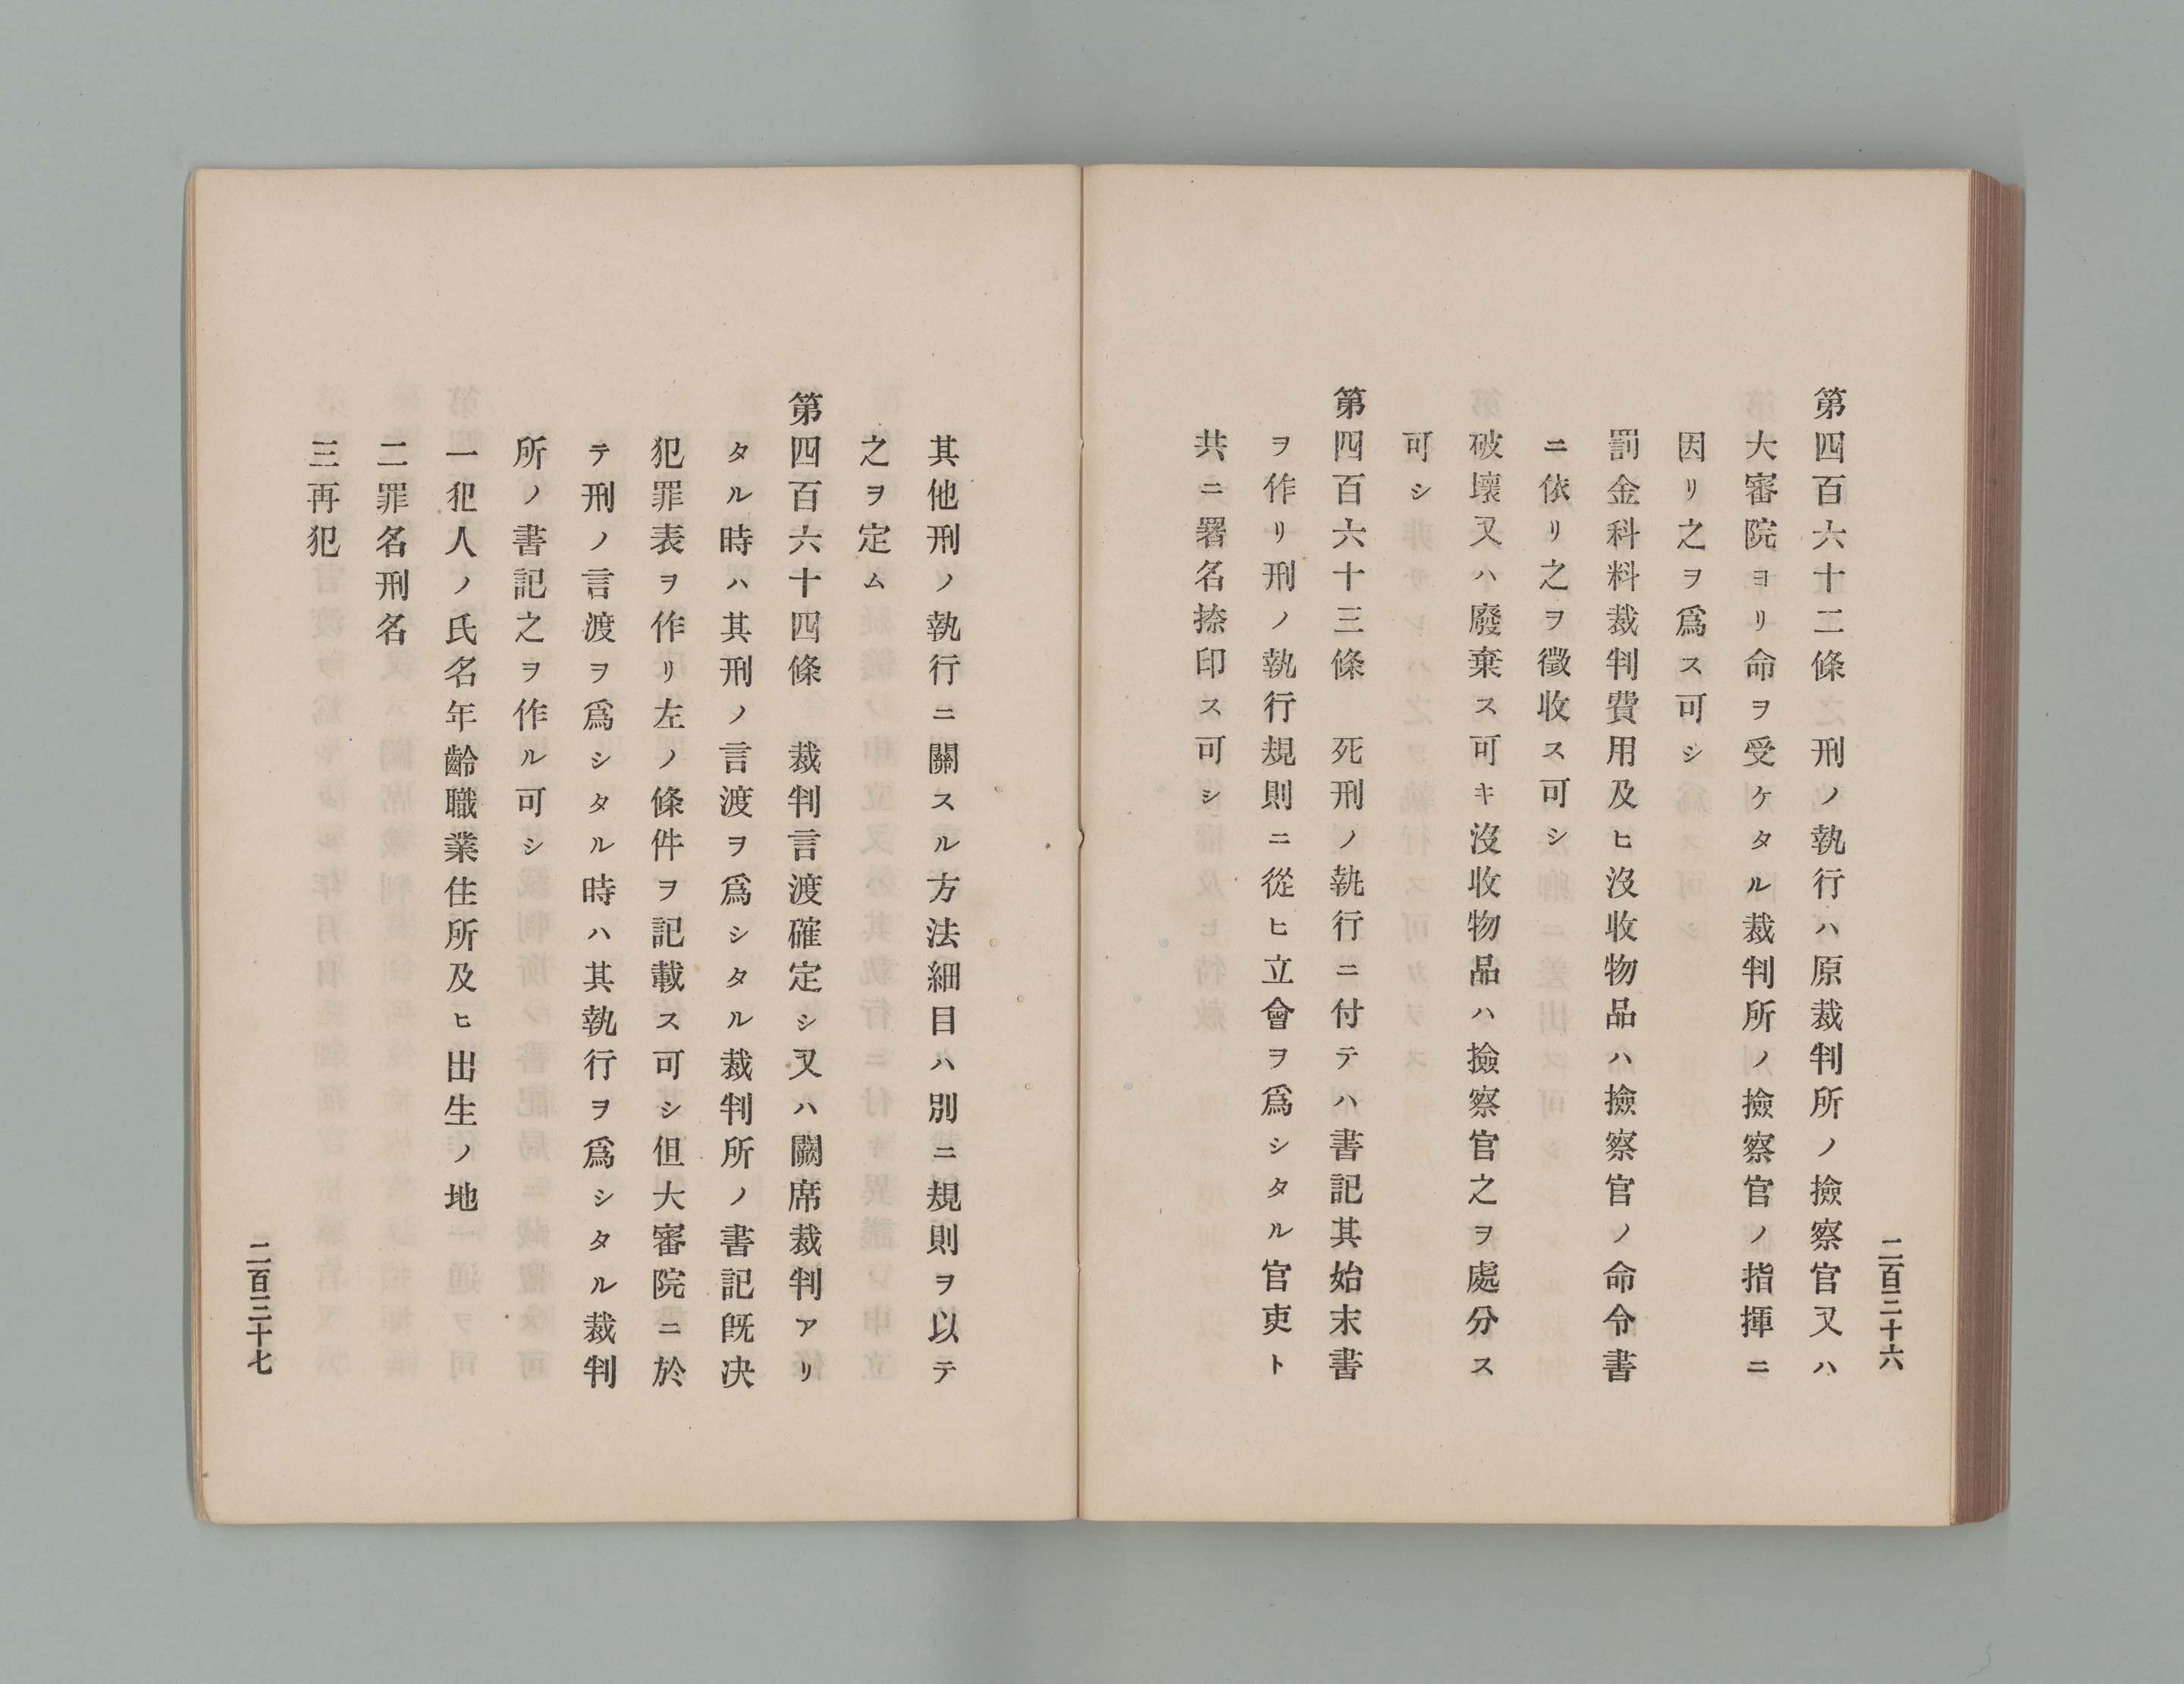 二百三十六
第四百六十二條　刑ノ執行ハ原裁判所ノ撿察官又ハ
大審院ヨリ命ヲ受ケタル裁判所ノ撿察官ノ指揮ニ
因リ之ヲ爲ス可シ
罰金科料裁判費用及ヒ沒收物品ハ撿察官ノ命令書
ニ依リ之ヲ徵收ス可シ
破壞又ハ廢棄ス可キ沒收物品ハ撿察官之ヲ處分ス
可シ
第四百六十三條　死刑ノ執行ニ付テハ書記其始末書
ヲ作リ刑ノ執行規則ニ從ヒ立會ヲ爲シタル官吏ト
共ニ署名捺印ス可シ
其他刑ノ執行ニ關スル方法細目ハ別ニ規則ヲ以テ
之ヲ定ム
第四百六十四條　裁判言渡確定シ又ハ闕席裁判アリ
タル時ハ其刑ノ言渡ヲ爲シタル裁判所ノ書記既决
犯罪表ヲ作リ左ノ條件ヲ記載ス可シ但大審院ニ於
テ刑ノ言渡ヲ爲シタル時ハ其執行ヲ爲シタル裁判
所ノ書記之ヲ作ル可シ
一犯人ノ氏名年齡職業住所及ヒ出生ノ地
二罪名刑名
三再犯
二百三十七